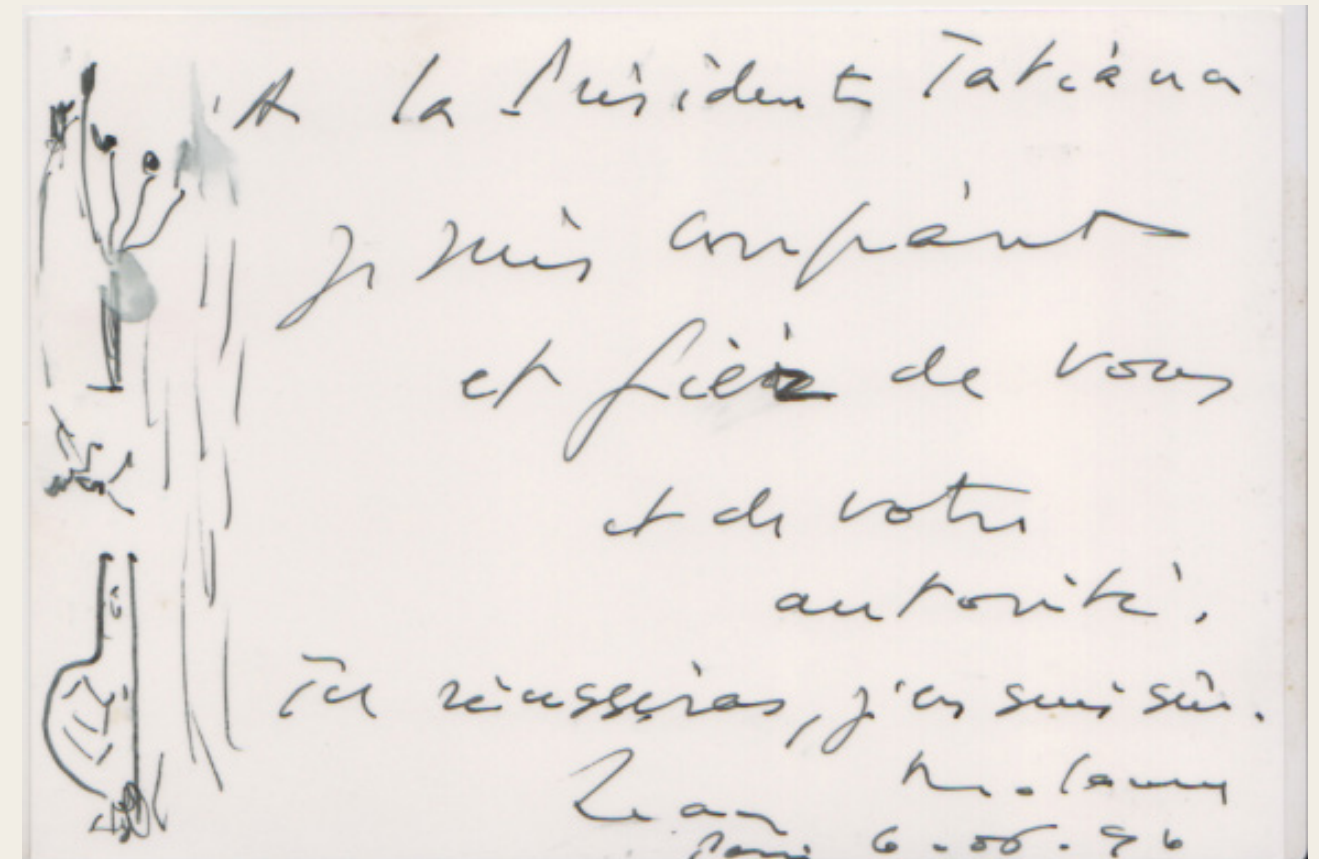 A la Présidente Tatiána
Je suis confiant
et fier de vous
et de votre
autorité.
Tu réussiras, j'en suis sûr.
Jean Malaurie
Paris 6.06.96